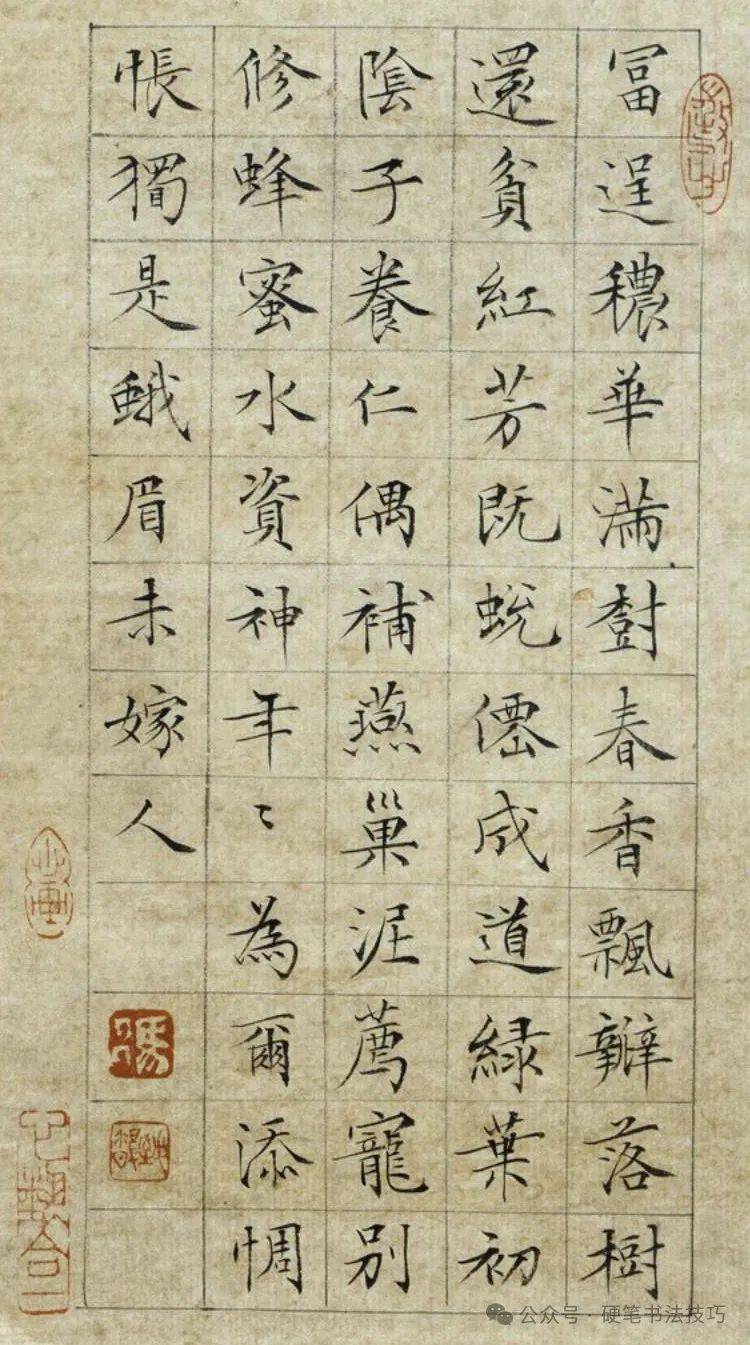 冨逞穠華滿樹春香飄瓣落樹
還貧紅芳既蛻僊成道綠葉初
陰子養仁偶補燕巢泥薦寵別
修蜂蜜水資神年〻為爾添惆
悵獨是蛾眉未嫁人
公众号·硬笔书法技巧